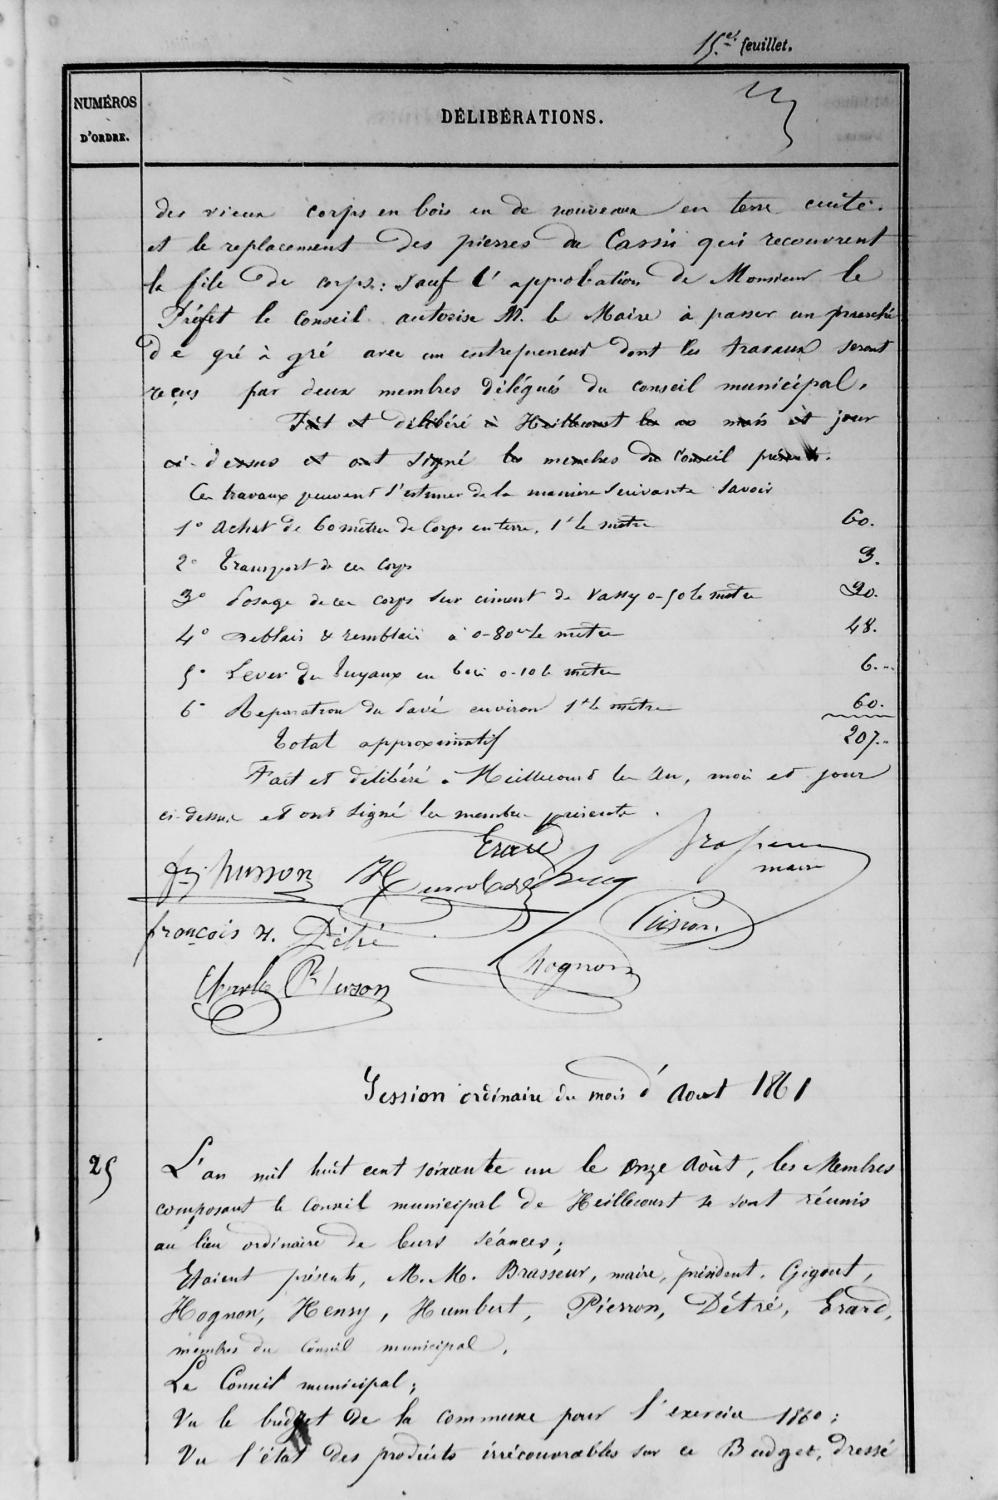 15.et feuillet.
NUMÉROS
D'ORDRE.
DÉLIBÉRATIONS.
des vieux corps en bois en de nouveaux en terre cuite.
et le replacement des pierres de Cassis qui recouvrent
la file de corps: sauf l'approbation de Monsieur le
Préfet le Conseil autorise M. le Maire à passer un marché
de gré à gré avec un entrepreneur dont les travaux seront
reçus par deux membres délégués du conseil municipal.
Fait et délibéré à Heillecourt les an mois et jour
ci-dessus et ont signé les membres du Conseil présents.
Ces travaux peuvent s'estimer de la manière suivante savoir
1° Achat de 60 mètres de Corps en terre, 1f le mètre 60.
2° Transport de ces Corps 3.
3° Posage de ces corps sur ciment de Vassy 0-50 le mètre 30.
4° Deblais & remblais à 0-80 le mètre 48.
5° Lever des tuyaux en bois 0-10 le mètre 6.
6° Reparation du Pavé environ 1f le mètre 60.
Total approximatif 207.
Fait et délibéré à Heillecourt les an, mois et jour
ci-dessus et ont signé les membres présents.
Erard
Brasseur
maire
husson
françois
Détré
Pierron
Hognon
Charles
Session ordinaire du mois d'Aout 1861
25
L'an mil huit cent soixante un le onze Août, les Membres
composant le Conseil municipal de Heillecourt se sont réunis
au lieu ordinaire de leurs séances;
Etaient présents, M. M. Brasseur, maire, président. Gigout,
Hognon, Henry, Humbert, Pierron, Détré, Erard,
membres du Conseil municipal.
Le Conseil municipal;
Vu le budget de la commune pour l'exercice 1860;
Vu l'état des produits irrécouvrables sur ce Budget, dressé